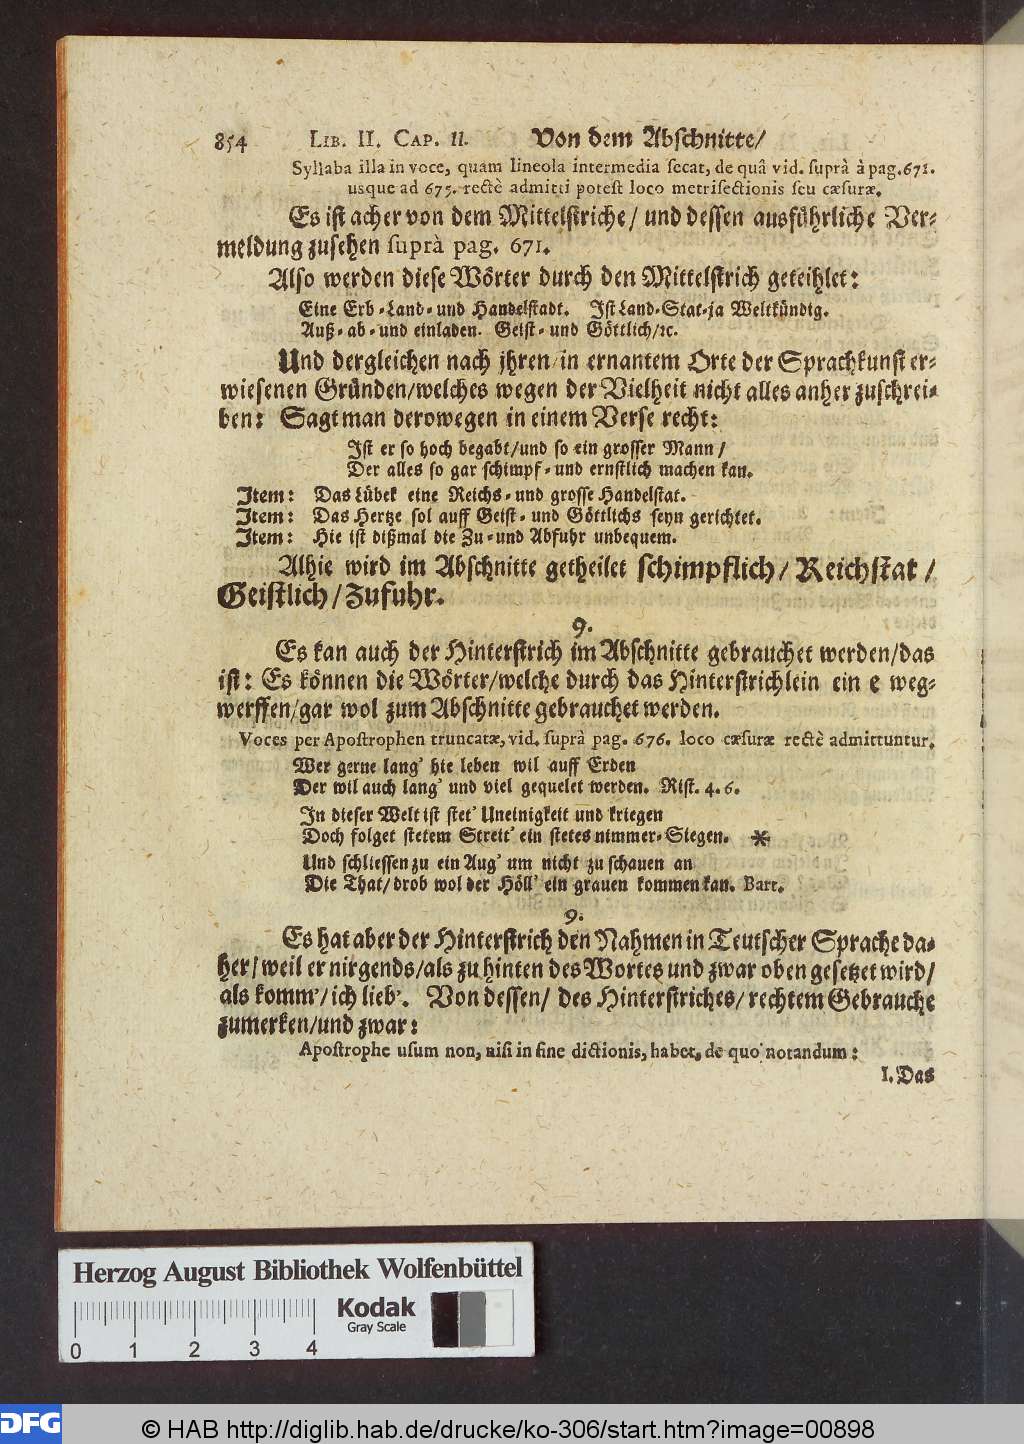 854 LIB. II. CAP. II. Von dem Abschnitte/
Syllaba illa in voce, quam lineola intermedia secat, de quâ vid. suprà à pag. 671.
usque ad 675. rectè admitti potest loco metrisectionis seu cæsuræ.
Es ist acher von dem Mittelstriche/ und dessen ausführliche Ver-
meldung zusehen suprà pag. 671.
Also werden diese Wörter durch den Mittelstrich geteihlet:
Eine Erb-Land-und Handelstadt. Ist Land-Stat-ja Weltkündig.
Auß-ab-und einladen. Geist-und Göttlich/ꝛc.
Und dergleichen nach jhren/in ernantem Orte der Sprachkunst er-
wiesenen Gründen/welches wegen der Vielheit nicht alles anher zuschrei-
ben: Sagt man derowegen in einem Verse recht:
Ist er so hoch begabt/und so ein grosser Mann/
Der alles so gar schimpf-und ernstlich machen kan.
Item: Das Lübek eine Reichs-und grosse Handelstat.
Item: Das Hertze sol auff Geist-und Göttlichs seyn gerichtet.
Item: Hie ist dißmal die Zu-und Abfuhr unbequem.
Alhie wird im Abschnitte getheilet schimpflich/ Reichstat/
Geistlich/Zufuhr.
9.
Es kan auch der Hinterstrich im Abschnitte gebrauchet werden/das
ist: Es können die Wörter/welche durch das Hinterstrichlein ein e weg-
werffen/gar wol zum Abschnitte gebrauchet werden.
Voces per Apostrophen truncatæ, vid. suprà pag. 676. loco cæsuræ rectè admittuntur.
Wer gerne lang' hie leben wil auff Erden
Der wil auch lang' und viel gequelet werden. Rist. 4. 6.
In dieser Welt ist stet' Uneinigkeit und kriegen
Doch folget stetem Streit' ein stetes nimmer-Siegen. *
Und schliessen zu ein Aug' um nicht zu schauen an
Die That/drob wol der Höll' ein grauen kommen kan. Bart.
9.
Es hat aber der Hinterstrich den Nahmen in Teutscher Sprache da-
her/weil er nirgends/als zu hinten des Wortes und zwar oben gesetzet wird/
als komm'/ich lieb'. Von dessen/ des Hinterstriches/rechtem Gebrauche
zumerken/und zwar:
Apostrophe usum non, nisi in fine dictionis, habet, de quo notandum:
1. Das
Herzog August Bibliothek Wolfenbüttel
Kodak
Gray Scale
0 1 2 3 4
DFG © HAB http://diglib.hab.de/drucke/ko-306/start.htm?image=00898